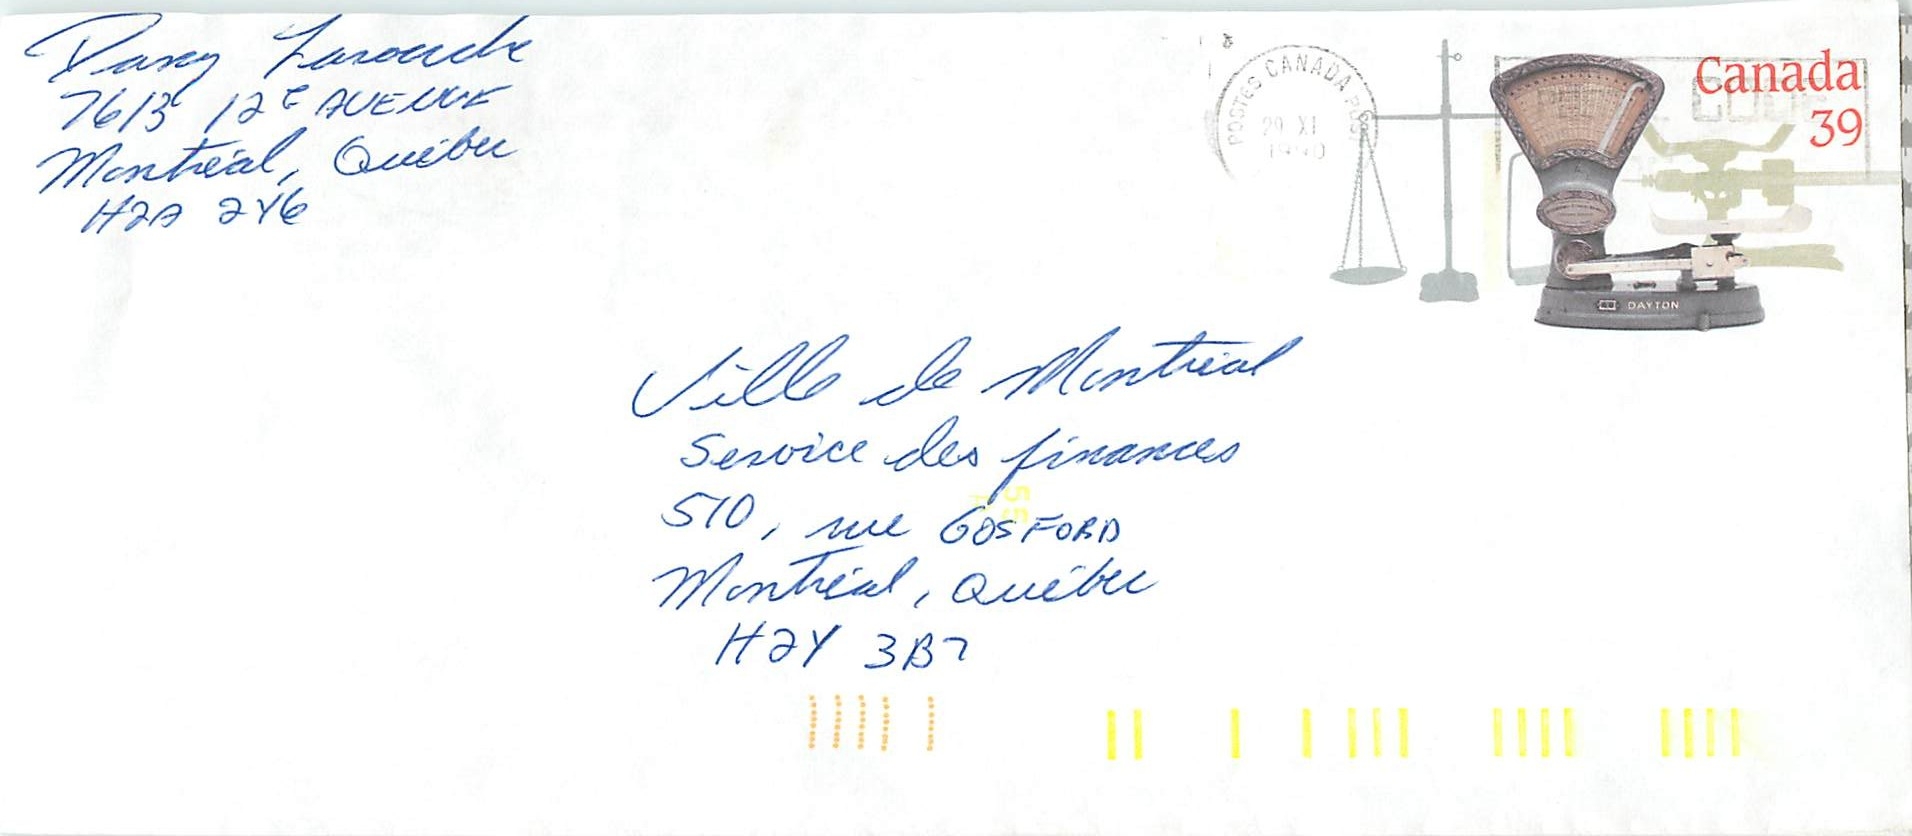 Dany Larouche
7613 12e AVENUE
Montréal, Québec
H2A 2Y6
POSTES CANADA POST
29 XI
1990
Canada
39
DAYTON
Ville de Montréal
Service des finances
55
510, rue GOSFORD
Montréal, Québec
H2Y 3B7